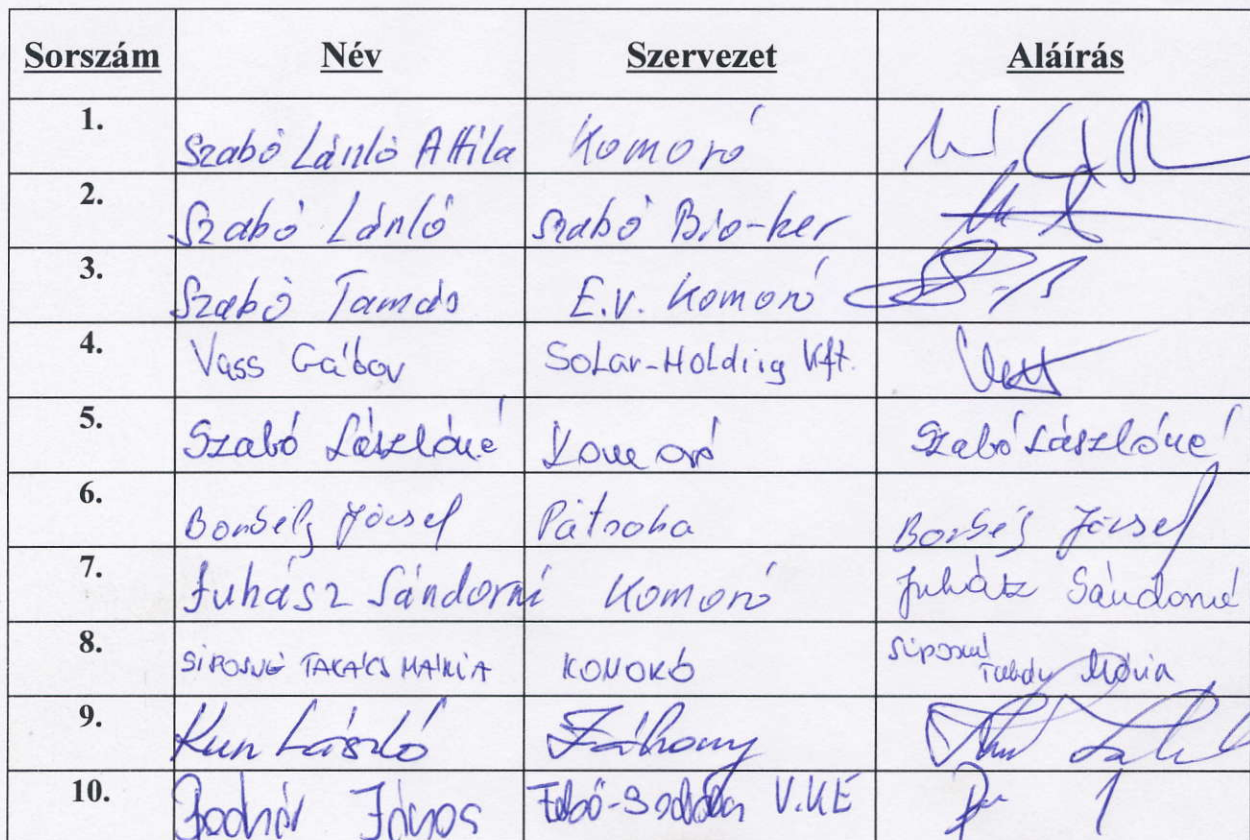 Sorszám Név Szervezet Aláírás
1. Szabó László Attila Komoró
2. Szabó László Szabó Bio-ker
3. Szabó Tamás E.V. Komoró
4. Vass Gábor Solar-Holding Kft.
5. Szabó Lászlóné Komoró Szabó Lászlóné
6. Borbély József Pátroha Borbély József
7. Juhász Sándorné Komoró Juhász Sándorné
8. SIPOSNÉ TAKÁCS MÁRIA KOMORÓ Siposné Mária
9. Kun László Záhony
10. Bodnár János Felső-Szabolcs V.K.E